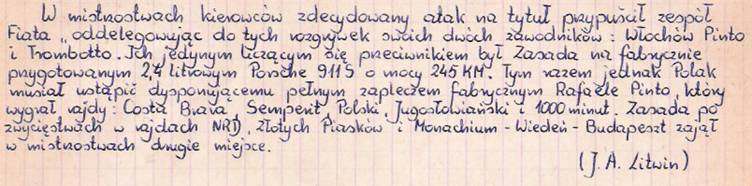 W mistrzostwach kierowców zdecydowany atak na tytuł przypuścił zespół
Fiata „ oddelegowując do tych rozgrywek swoich dwóch zawodników: Włochów Pinto
i Trombotto. Ich jedynym liczącym się przeciwnikiem był Zasada na fabrycznie
przygotowanym 2,4 litrowym Porsche 911S o mocy 245 KM. Tym razem jednak Polak
musiał ustąpić dysponującemu pełnym zapleczem fabrycznym Rafaele Pinto, który
wygrał rajdy: Costa Brava, Semperit, Polski, Jugosłowiański i 1000 minut. Zasada po
zwycięstwach w rajdach NRD, Złotych Piasków i Monachium - Wiedeń - Budapeszt zajął
w mistrzostwach drugie miejsce.
(J. A. Litwin)